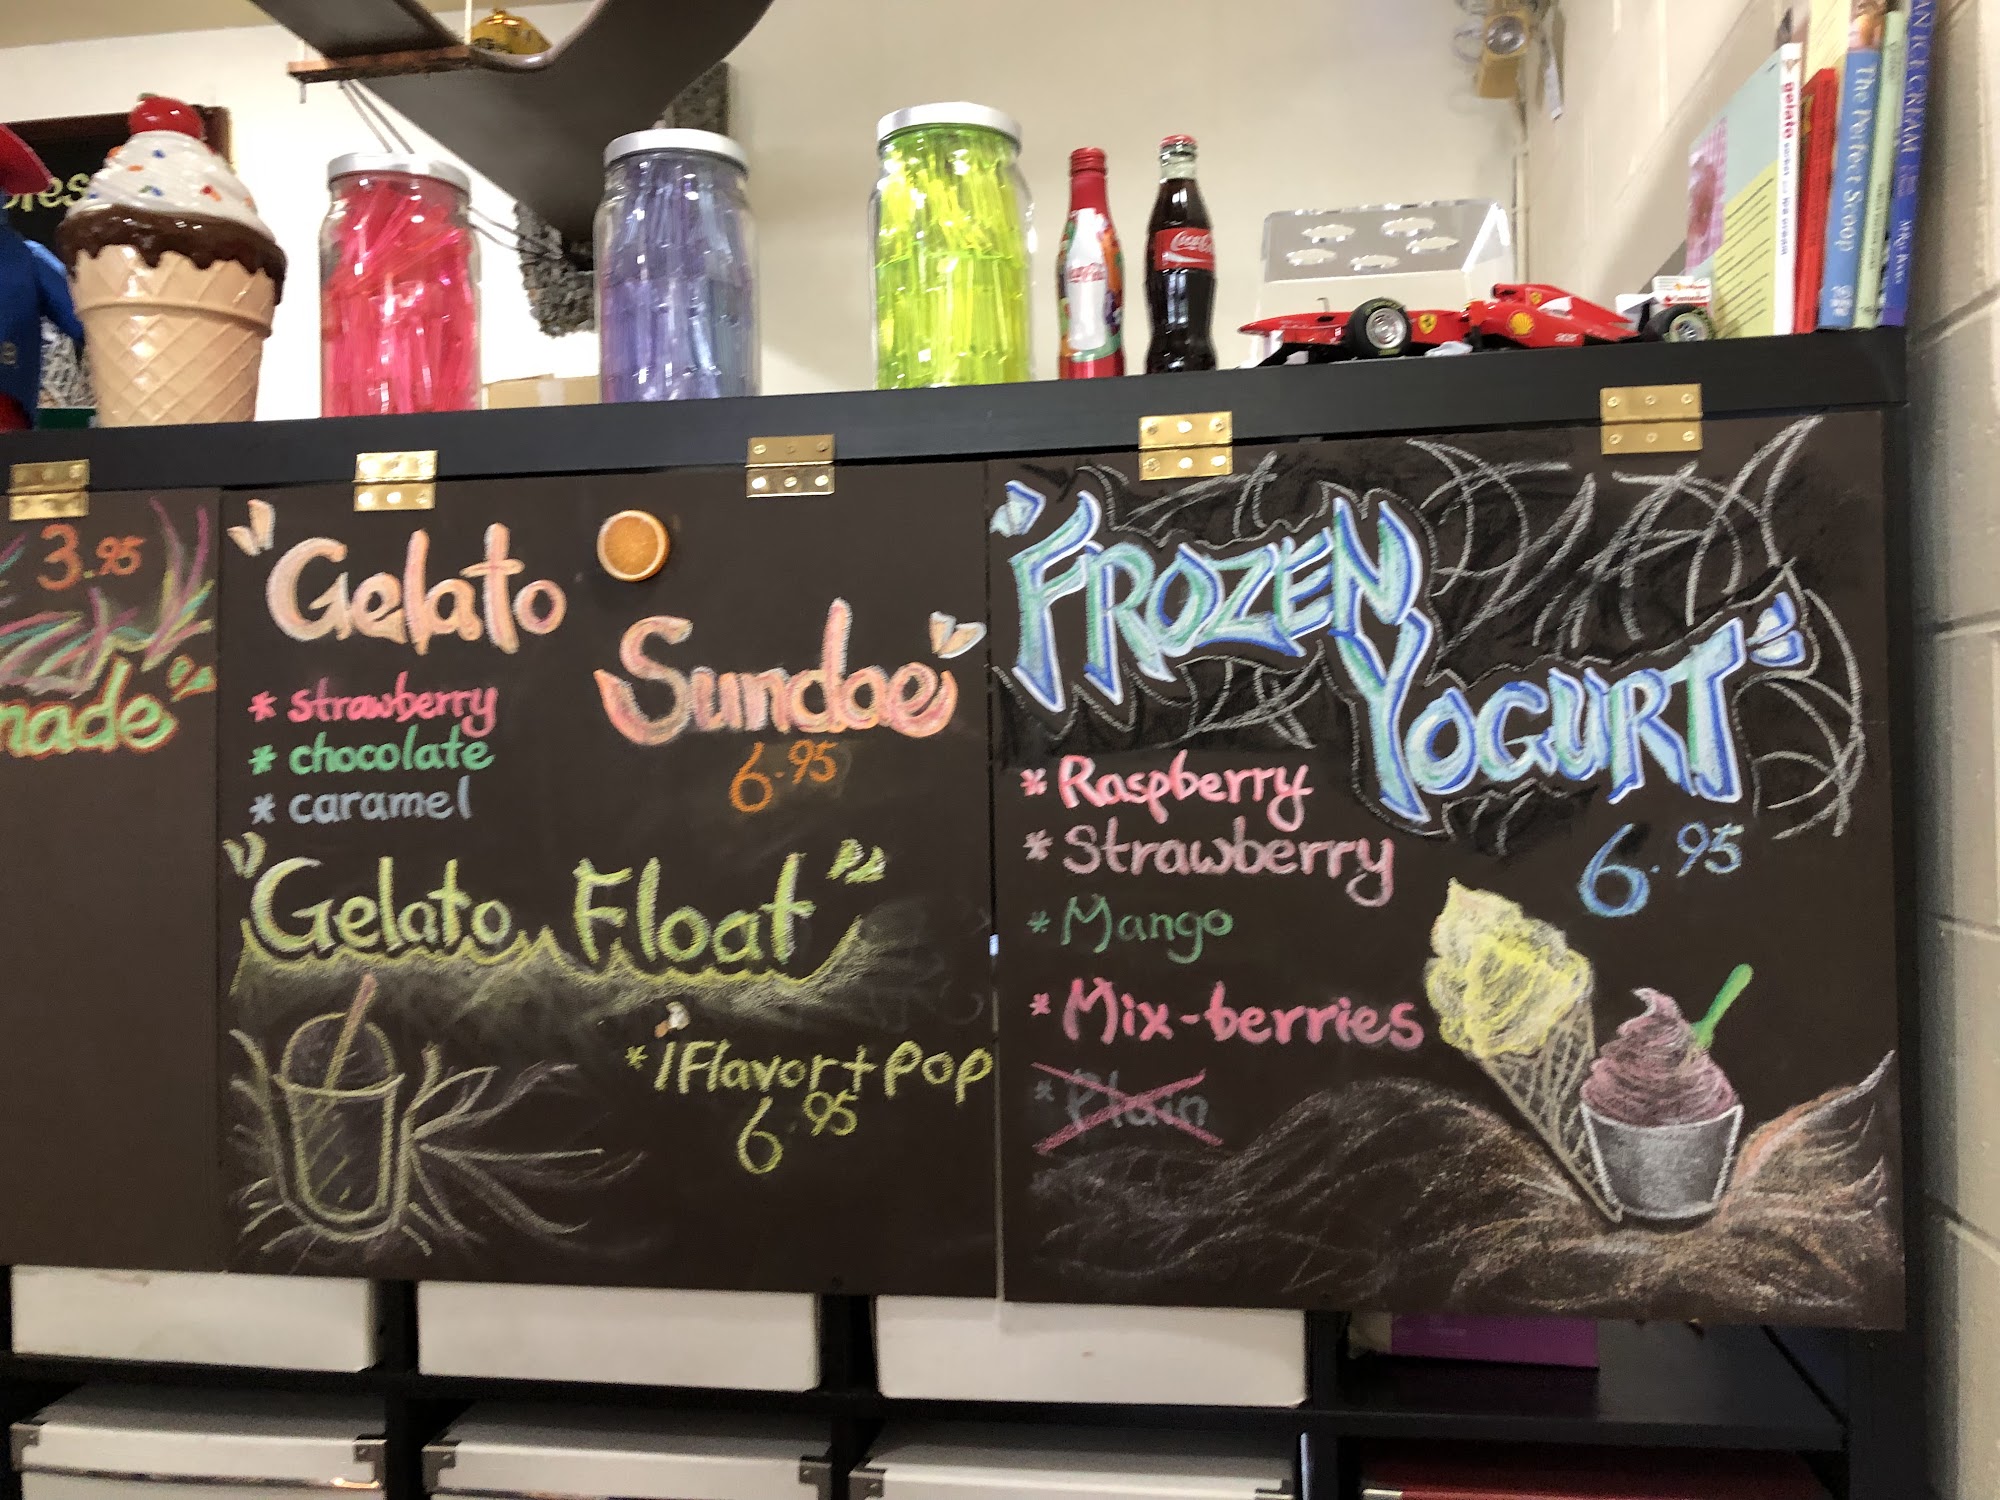 3.95
"Gelato
Sundae"
* strawberry
* chocolate
* caramel
6.95
"Gelato Float"
* 1 Flavor + Pop
6.95
"FROZEN
YOGURT"
* Raspberry
* Strawberry
* Mango
* Mix-berries
* Plain
6.95
Coca-Cola
Santander
gelato
The Perfect Scoop
ICE CREAM